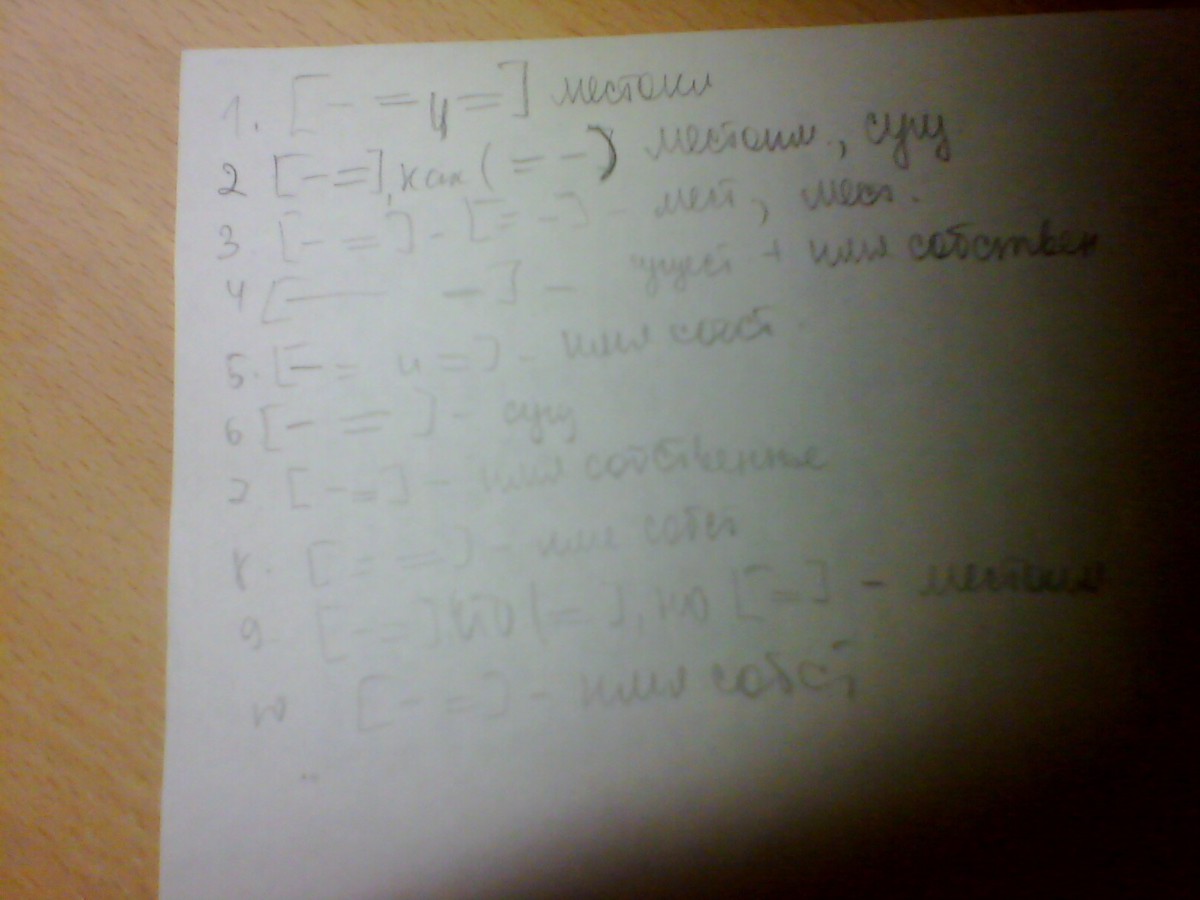 1. [– = и =] местоим
2 [– =], как (= –) местоим., сущ
3 [– =] – [= –] – мест, мест.
4 [— –] – сущест + имя собствен
5. [– = и =] – имя собст.
6 [– =] – сущ
7 [– =] – имя собственные
8. [– =] – имя собст
9 [– =] что (=), но [=] – местоим
10 [– =] – имя собст